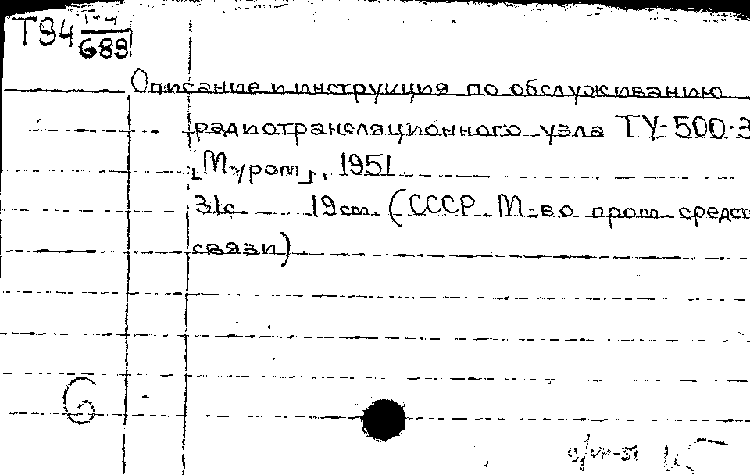 Т94 Г-4/689
Описание и инструкция по обслуживанию
радиотрансляционного узла ТУ-500-3
"Муром", 1951
31с. 19см. (СССР. М-во пром. средс
связи).
6